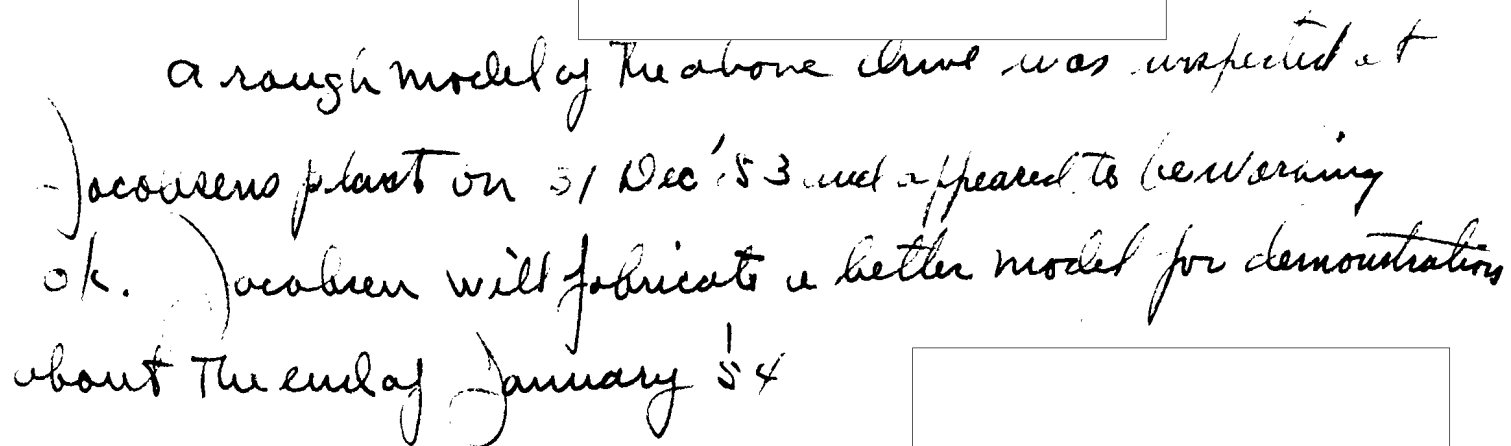 A rough model of the above drive was inspected at
Jacobsens plant on 31 Dec '53 and appeared to be working
ok. Jacobsen will fabricate a better model for demonstration
about the end of January '54